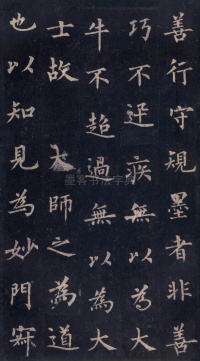 善行守規墨者非善
巧不逕疾無以為大
牛不超過無以為大
士故大師之為道
也以知見為妙門寂
墨客书法字典